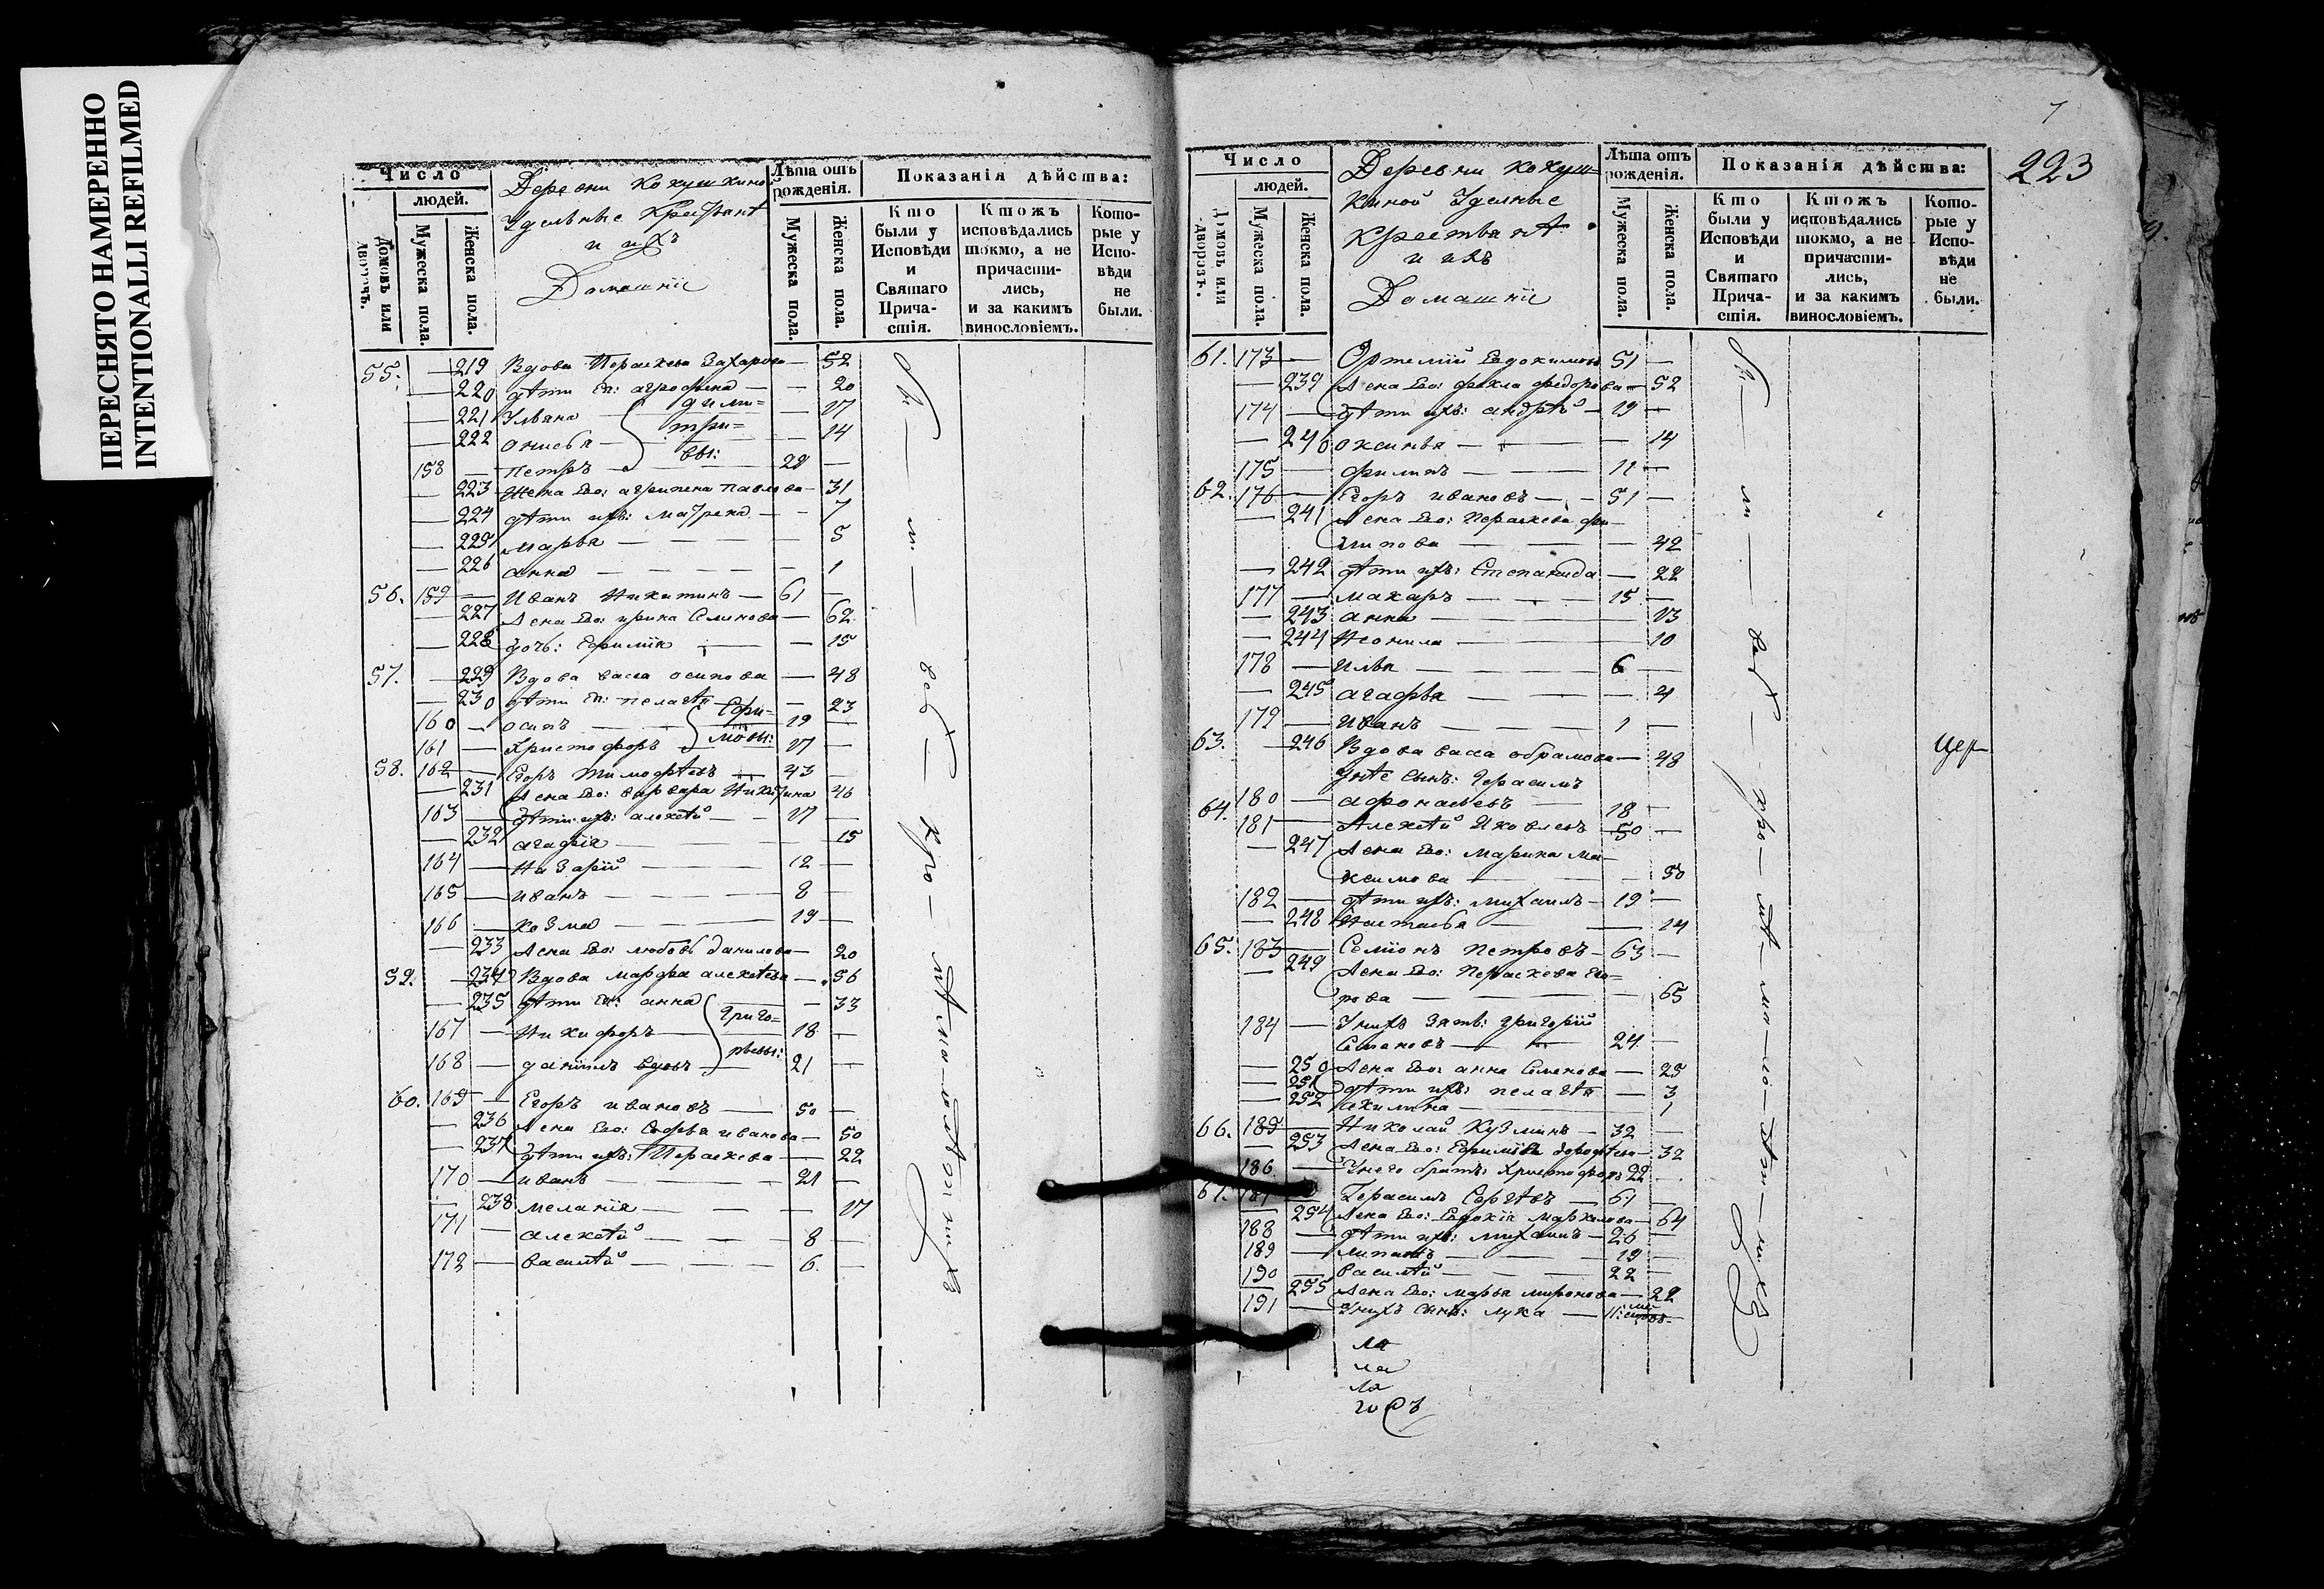 ПЕРЕСНЯТО НАМЕРЕННО
INTENTIONALLI REFILMED
Число
людей.
Домовъ или дворовъ.
Мужеска пола.
Женска пола.
Деревни Кокушкиной
Удельные Крестьянѣ
и ихъ
Домашніе
Лѣта отъ рожденія.
Мужеска пола.
Женска пола.
Показанія дѣйства:
Кто были у Исповѣди и Святаго Причастія.
Ктожъ исповѣдались токмо, а не причастились, и за какимъ винословіемъ.
Которые у Исповѣди не были.
55. — 219 Вдова Пораскева Захарова — 52
— 220 дѣти Ея: агрофена — — 20
— 221 Ульяна — 17
— 222 Онисья — 14
дими=
трі=
вы:
158 — Петръ — 28 —
— 223 Жена Его: агрипена Павлова — 31
— 224 дѣти ихъ: Матрена — 7
— 225 Марья — 5
— 226 анна — 1
56. 159 — Иванъ Никитинъ — 61 —
— 227 Жена Его: ирина Семенова — 62
— 228 дочь: Ефимія — 15
57. — 229 Вдова васса осипова — 48
— 230 дѣти Ея: пелагѣя — 23
160 — осипъ — 19 —
161 — Христофоръ — 17 —
Ефи=
мовы:
58. 162 — Егоръ Тимофѣевъ — 43 —
— 231 Жена Его: варвара Никитина 46
163 — дѣти ихъ: алексѣй — 17 —
— 232 агафія — 15
164 — Назарій — 12 —
165 — иванъ — 8 —
166 — козма — 19 —
— 233 Жена Его: любовь данилова — 20
59. — 234 Вдова марфа алексѣева — 56
— 235 дѣти Ея: анна — 33
167 — Никифоръ — 18 —
168 — даніилъ вдовъ — 21 —
Григо=
рьевы:
60. 169 — Егоръ ивановъ — 50 —
— 236 Жена Его: Софья иванова — 50
— 237 дѣти ихъ: Пораскева — 22
170 — иванъ — 21 —
— 238 меланія — 17
171 — алексѣй — 8 —
172 — василѣй — 6. —
7
223
Число
людей.
Домовъ или дворовъ.
Мужеска пола.
Женска пола.
Деревни Кокуш=
киной Уделные
Крестьянѣ
и ихъ
Домашніе
Лѣта отъ рожденія.
Мужеска пола.
Женска пола.
Показанія дѣйства:
Кто были у Исповѣди и Святаго Причастія.
Ктожъ исповѣдались токмо, а не причастились, и за какимъ винословіемъ.
Которые у Исповѣди не были.
61. 173 — Ортемій Евдокимовъ 51 —
— 239 Жена Его: фекла федорова — 52
174 — дѣти ихъ: андрѣй — 19 —
— 240 оксинья — 14
175 — филипъ — 11 —
62. 176 — Егоръ ивановъ — 51 —
— 241 Жена Его: Пораскева фи—
липова — 42
— 242 дѣти ихъ: Степанида — 22
177 — макаръ — 15 —
— 243 анна — 13
— 244 Неонила — 10
178 — илья — 6 —
— 245 агафья — 4
179 — иванъ — 1 —
63. — 246 Вдова васса обрамова — 48
у нее сынъ: Герасимъ
180 — афонасьевъ — 18 —
64. 181 — Алексѣй Яковлевъ 50 —
— 247 Жена Его: Марина Ма—
ксимова — 50
182 — дѣти ихъ: михаилъ — 19 —
— 248 Настасья — 14
65. 183 — Семіонъ Петровъ — 63 —
— 249 Жена Его: Пораскева Его=
рова — 65
184 — у нихъ зять: григорій
Степановъ — 24 —
— 250 Жена Его: анна Семенова — 25
— 251 дѣти ихъ: пелагѣя — 3
— 252 акилина — 1
66. 185 — Николай Кузминъ — 32 —
— 253 Жена Его: Ефимія дорофѣева — 32
186 — У него братъ: Христофоръ 22 —
67. 187 — Герасимъ Сергѣевъ — 61 —
— 254 Жена Его: Евдокія Маркелова — 64
188 — дѣти ихъ: михаилъ — 26 —
189 — — 19 —
190 — Василѣй — 22 —
— 255 Жена Его: марья миронова — 22
191 — У нихъ сынъ: лука — 11: